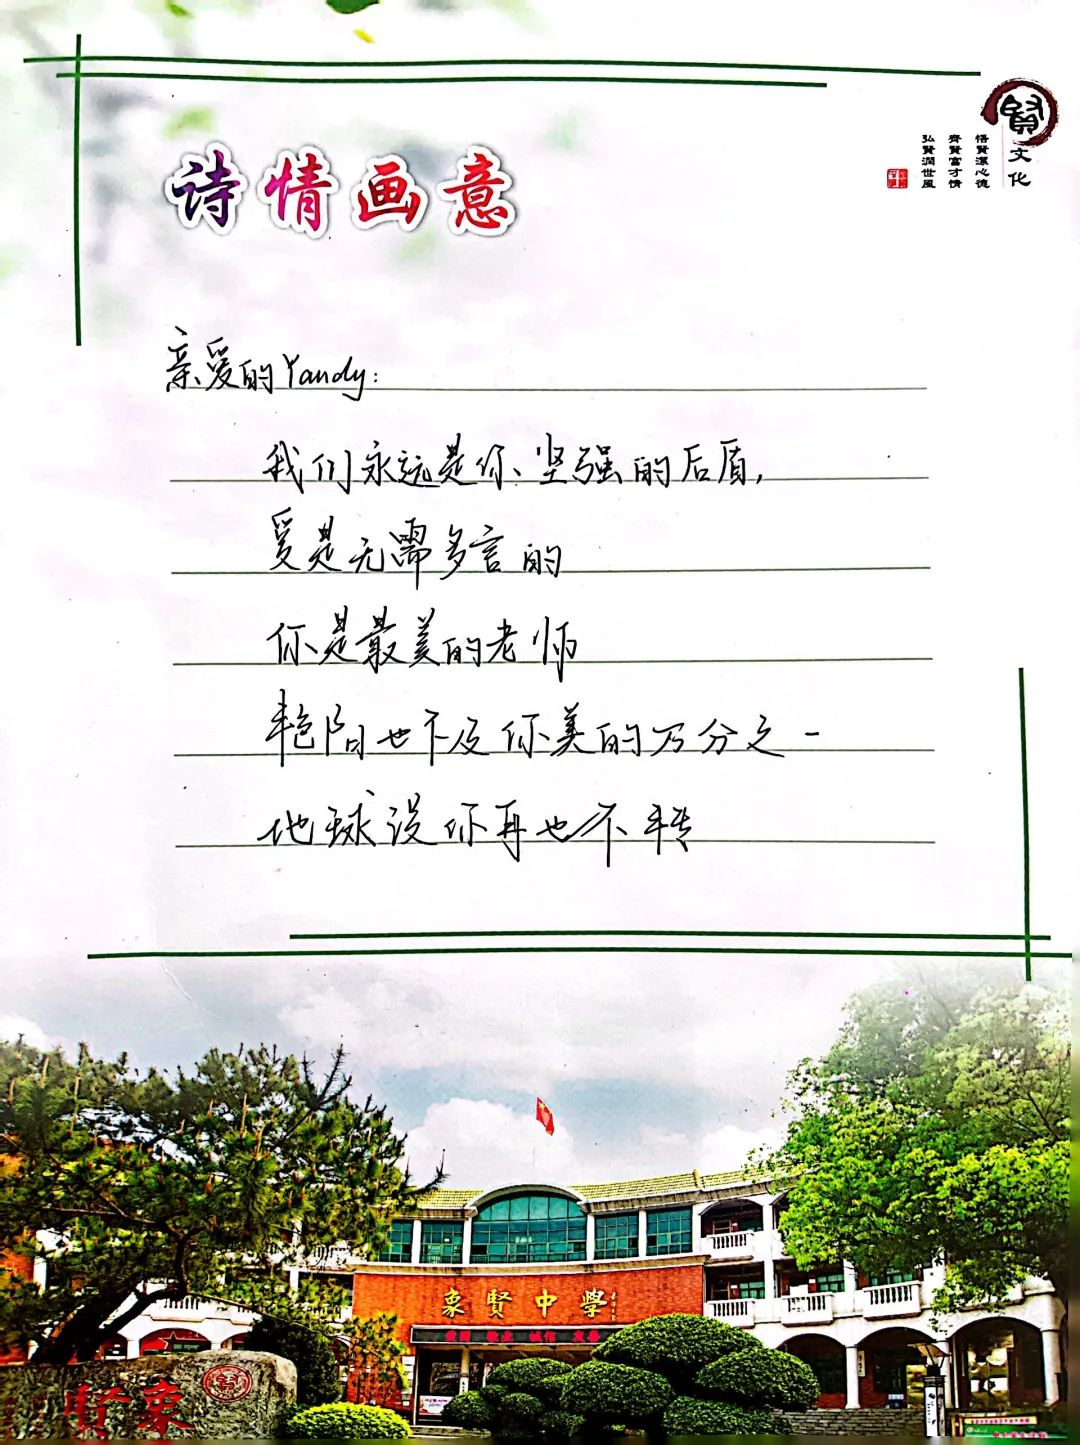 賢
文化
悟賢潔心德
齊賢富才情
弘賢潤世風
诗情画意
亲爱的Yandy:
我们永远是你、坚强的后盾,
爱是无需多言的
你是最美的老师
艳阳也不及你美的万分之一
地球没你再也不转
象賢中學
賢象